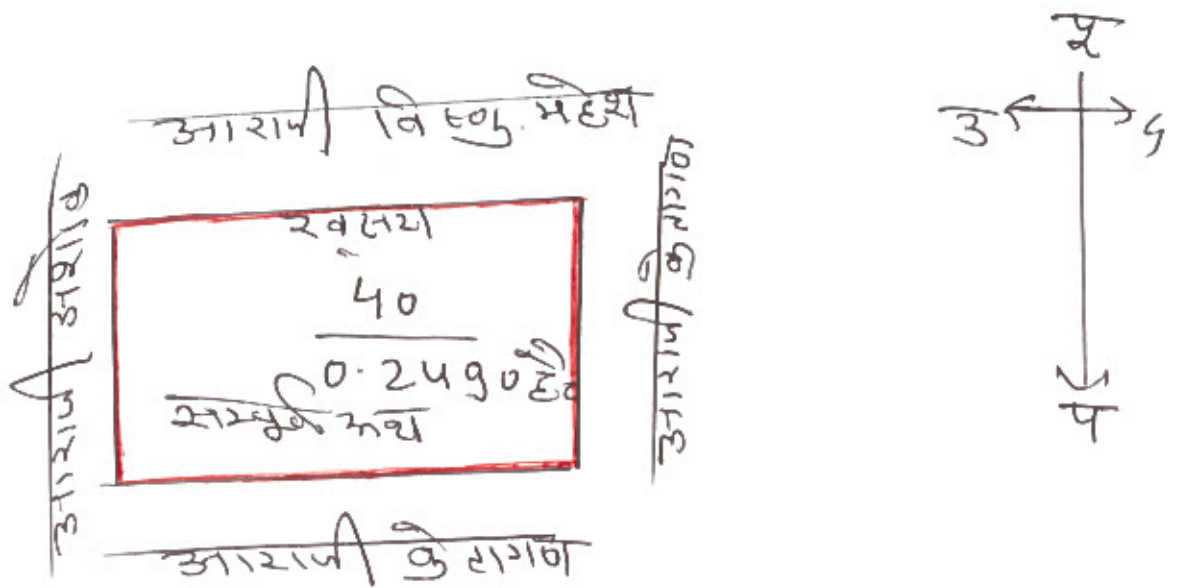 पू
उ
द
प
आराजी विष्णु. महेश
आराजी अशोक
ख०सं०
40
0.2490 हे०
सम्पूर्ण अंश
आराजी क्रेतागण
आराजी क्रेतागण